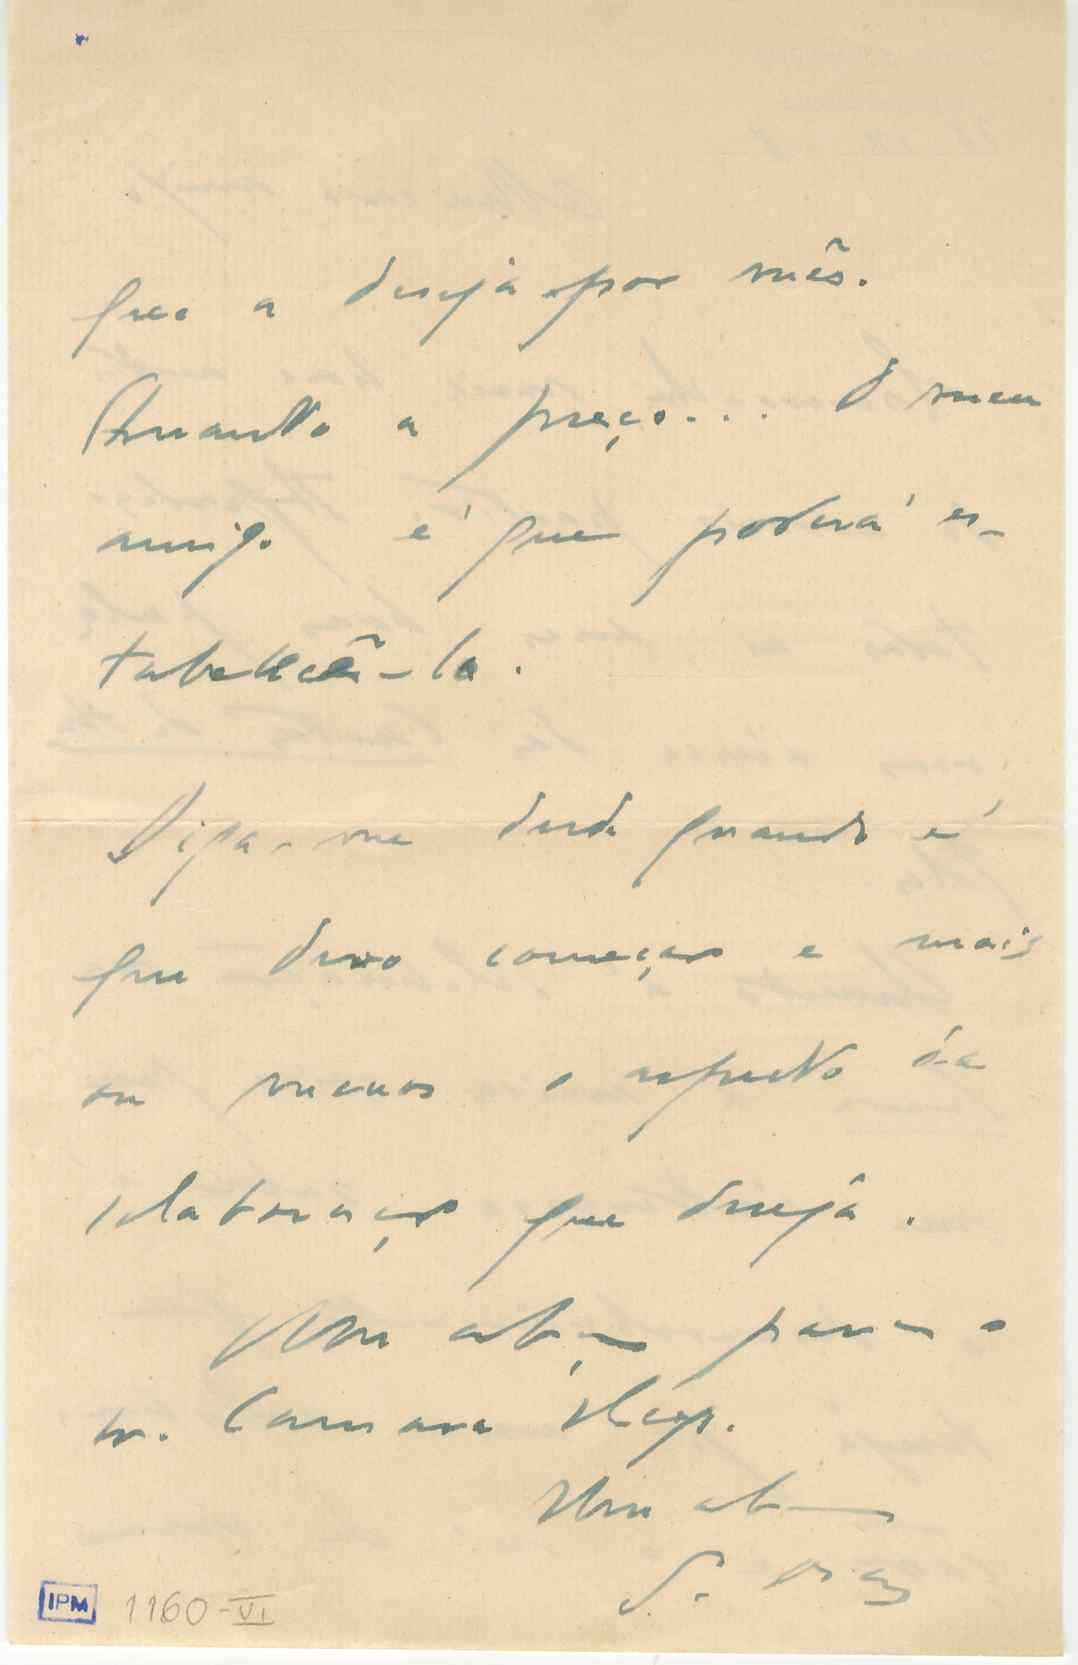 que a deseja por mês.
Quanto a preço... O meu
amigo é que poderá es-
tabelecê-lo.
Diga-me desde quando é
que devo começar e mais
ou menos o aspecto da
colaboração que deseja.
Um abraço para o
Dr. Camara Reys.
Um ab
S. Dias
IPM 1160-VI